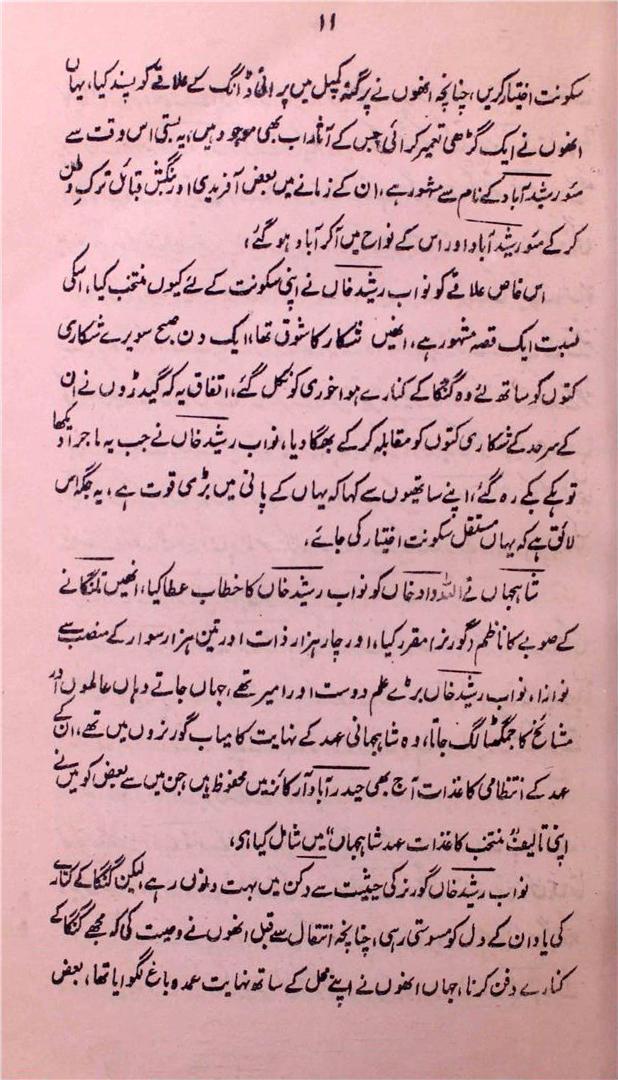 ۱۱
سکونت اختیار کریں، چنانچہ انھوں نے پرگنۂ کمپل میں پرانی ڈانگ کے علاقے کو پسند کیا، یہاں
انھوں نے ایک گڑھی تعمیر کرائی جس کے آثار اب بھی موجود ہیں، یہ بستی اس وقت سے
مئو رشید آباد کے نام سے مشہور ہے، ان کے زمانے میں بعض آفریدی اور بنگش قبائل ترک وطن
کر کے مئو رشید آباد اور اس کے نواح میں آکر آباد ہو گئے،
اس خاص علاقے کو نواب رشید خاں نے اپنی سکونت کے لئے کیوں منتخب کیا، اسکی
نسبت ایک قصہ مشہور ہے، انھیں شکار کا شوق تھا، ایک دن صبح سویرے شکاری
کتوں کو ساتھ لئے وہ گنگا کے کنارے ہوا خوری کو نکل گئے، اتفاق یہ کہ گیدڑوں نے ان
کے سرحد کے شکاری کتوں کو مقابلہ کر کے بھگا دیا، نواب رشید خاں نے جب یہ ماجرا دیکھا
تو ہکے بکے رہ گئے، اپنے ساتھیوں سے کہا کہ یہاں کے پانی میں بڑی قوت ہے، یہ جگہ اس
لائق ہے کہ یہاں مستقل سکونت اختیار کی جائے،
شاہجہاں نے اللہ داد خاں کو نواب رشید خاں کا خطاب عطا کیا، انھیں تلنگانے
کے صوبے کا ناظم (گورنر) مقرر کیا، اور چار ہزار ذات اور تین ہزار سوار کے منصب سے
نوازا، نواب رشید خاں بڑے علم دوست اور امیر تھے، جہاں جاتے وہاں عالموں اور
مشائخ کا جمگھٹا لگ جاتا، وہ شاہجہانی عہد کے نہایت کامیاب گورنروں میں تھے، ان کے
عہد کے انتظامی کاغذات آج بھی حیدر آباد آرکائز میں محفوظ ہیں، جن میں سے بعض کو میں نے
اپنی تالیف "منتخب کاغذات عہد شاہجہاں" میں شامل کیا ہی،
نواب رشید خاں گورنر کی حیثیت سے دکن میں بہت دنوں رہے، لیکن گنگا کے کنارے
کی یاد ان کے دل کو مسوستی رہی، چنانچہ انتقال سے قبل انھوں نے وصیت کی کہ مجھے گنگا کے
کنارے دفن کرنا، جہاں انھوں نے اپنے محل کے ساتھ نہایت عمدہ باغ لگوایا تھا، بعض